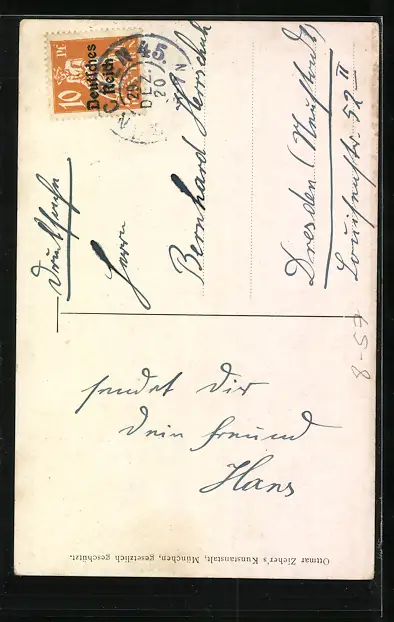 10
Pf
Deutsches
Reich
45.
DEZ.
20
Drucksache
Herrn
Bernhard Herrschuh
Dresden (Neustadt)
Louisenstr. 52 II
8-57
sendet Dir
Dein Freund
Hans
Ottmar Zieher's Kunstanstalt, München, gesetzlich geschützt.